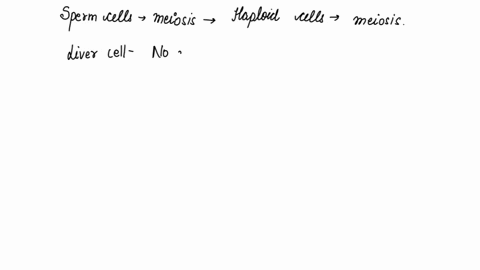 Sperm cells → meiosis → Haploid cells → meiosis.
liver cell- No